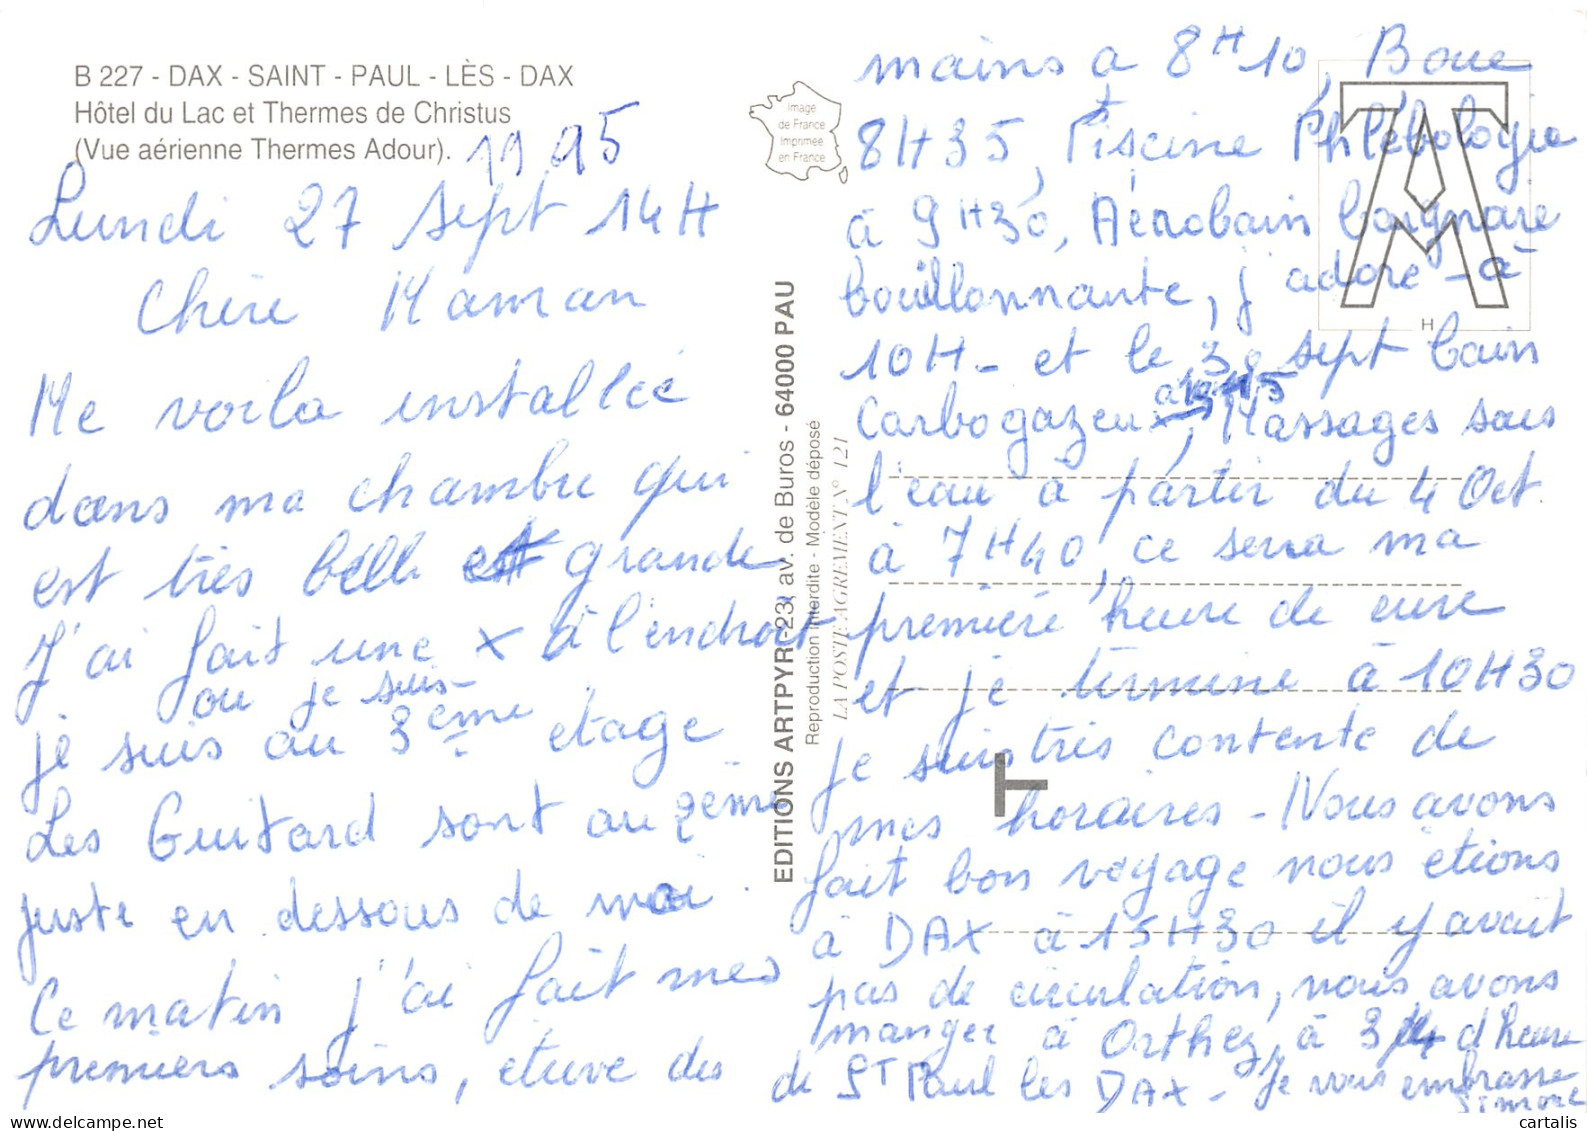 B 227 - DAX - SAINT - PAUL - LÈS - DAX
Hôtel du Lac et Thermes de Christus
(Vue aérienne Thermes Adour).
1995
Lundi 27 Sept 14H
Chère Maman
Me voila installée
dans ma chambre qui
est très belle et grande
J'ai fait une x à l'endroit
ou je suis
je suis au 3ème etage
Les Guitard sont au 2ème
juste en dessous de moi.
Ce matin j'ai fait mes
premiers soins, étuve des
Image
de France
Imprimee
en France
EDITIONS ARTPYR-23, av. de Buros - 64000 PAU
Reproduction Interdite - Modèle déposé
LA POSTE AGREMENT N° 121
mains a 8H10, Boue
8H35, Piscine Phlébologie
à 9H30, Aérobain baignoire
bouillonnante, j'adore - à
10H - et le 30 sept bain
Carbogazeux, Massages sous
l'eau à partir du 4 Oct
à 7H40, ce sera ma
première heure de cure
et je termine à 10H30
je suis très contente de
mes horaires - Nous avons
fait bon voyage nous étions
à DAX à 15H30 il y avait
pas de circulation, nous avons
manger à Orthez, à 3/4 d'heure
de St Paul les DAX - Je vous embrasse
Simone
H
T
cartalis